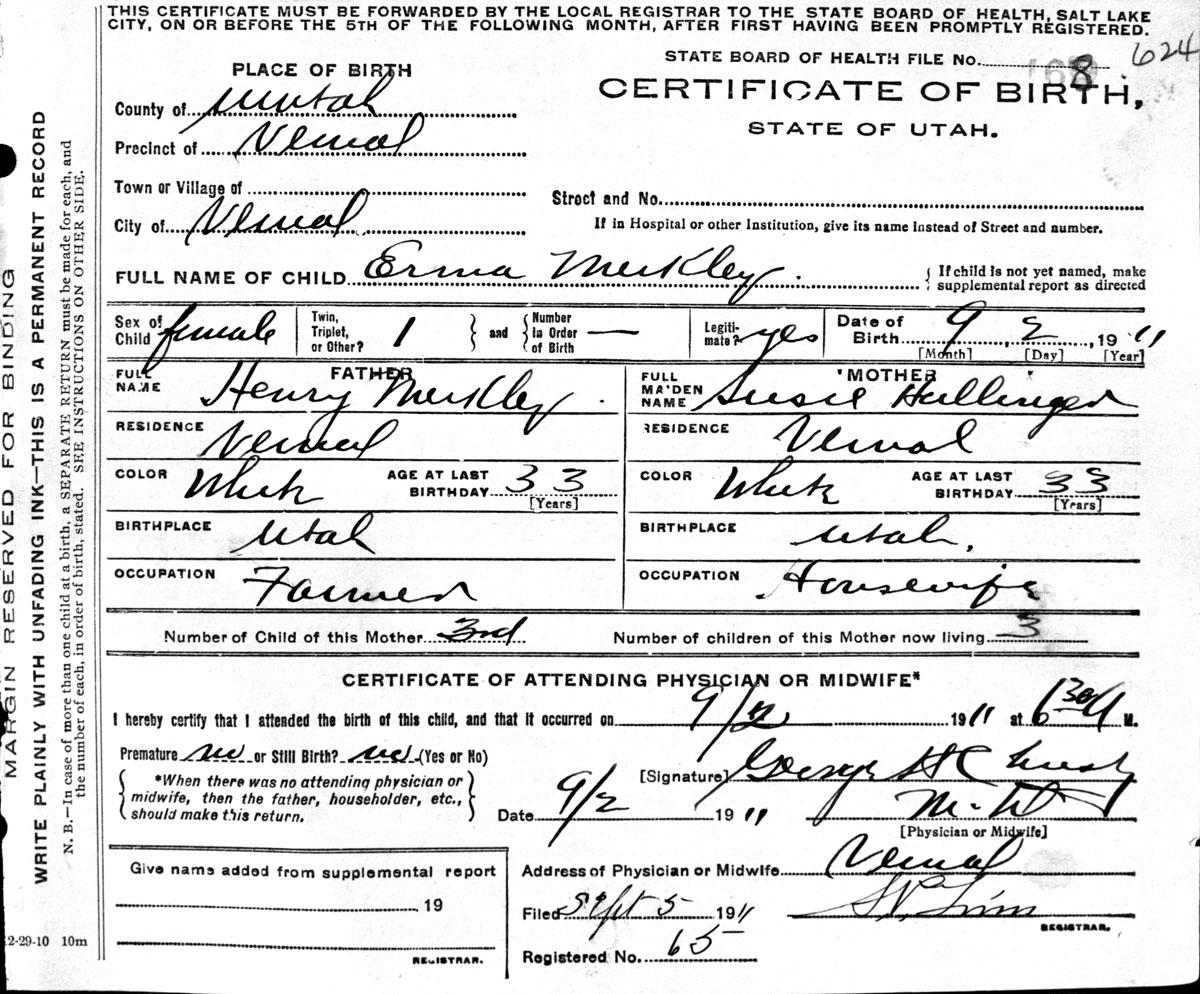 THIS CERTIFICATE MUST BE FORWARDED BY THE LOCAL REGISTRAR TO THE STATE BOARD OF HEALTH, SALT LAKE
CITY, ON OR BEFORE THE 5TH OF THE FOLLOWING MONTH, AFTER FIRST HAVING BEEN PROMPTLY REGISTERED.
STATE BOARD OF HEALTH FILE NO. 168 624
PLACE OF BIRTH
CERTIFICATE OF BIRTH,
STATE OF UTAH.
County of Uintah
Precinct of Vernal
Town or Village of
Street and No.
City of Vernal
If in Hospital or other Institution, give its name instead of Street and number.
FULL NAME OF CHILD Erma Merkley. { If child is not yet named, make
supplemental report as directed
Sex of Child female Twin, Triplet, or Other? 1 } and { Number in Order of Birth — Legiti-mate? yes Date of Birth 9, 2, 1911
[Month] [Day] [Year]
FATHER
FULL NAME Henry Merkley.
RESIDENCE Vernal
COLOR White AGE AT LAST BIRTHDAY 33
[Years]
BIRTHPLACE Utah
OCCUPATION Farmer
MOTHER
FULL MAIDEN NAME Susie Hullinger
RESIDENCE Vernal
COLOR White AGE AT LAST BIRTHDAY 33
[Years]
BIRTHPLACE Utah,
OCCUPATION Housewife
Number of Child of this Mother 3rd Number of children of this Mother now living 3
CERTIFICATE OF ATTENDING PHYSICIAN OR MIDWIFE*
I hereby certify that I attended the birth of this child, and that it occurred on 9/2 1911 at 6 30 A M.
Premature no or Still Birth? no (Yes or No)
*When there was no attending physician or
midwife, then the father, householder, etc.,
should make this return.
[Signature] George H
Date 9/2 1911 M.D.
[Physician or Midwife]
Give name added from supplemental report
19
REGISTRAR.
Address of Physician or Midwife Vernal
Filed Sept 5 1911
REGISTRAR.
Registered No. 65
2-29-10 10m
MARGIN RESERVED FOR BINDING
WRITE PLAINLY WITH UNFADING INK—THIS IS A PERMANENT RECORD
N. B.—In case of more than one child at a birth, a SEPARATE RETURN must be made for each, and
the number of each, in order of birth, stated. SEE INSTRUCTIONS ON OTHER SIDE.